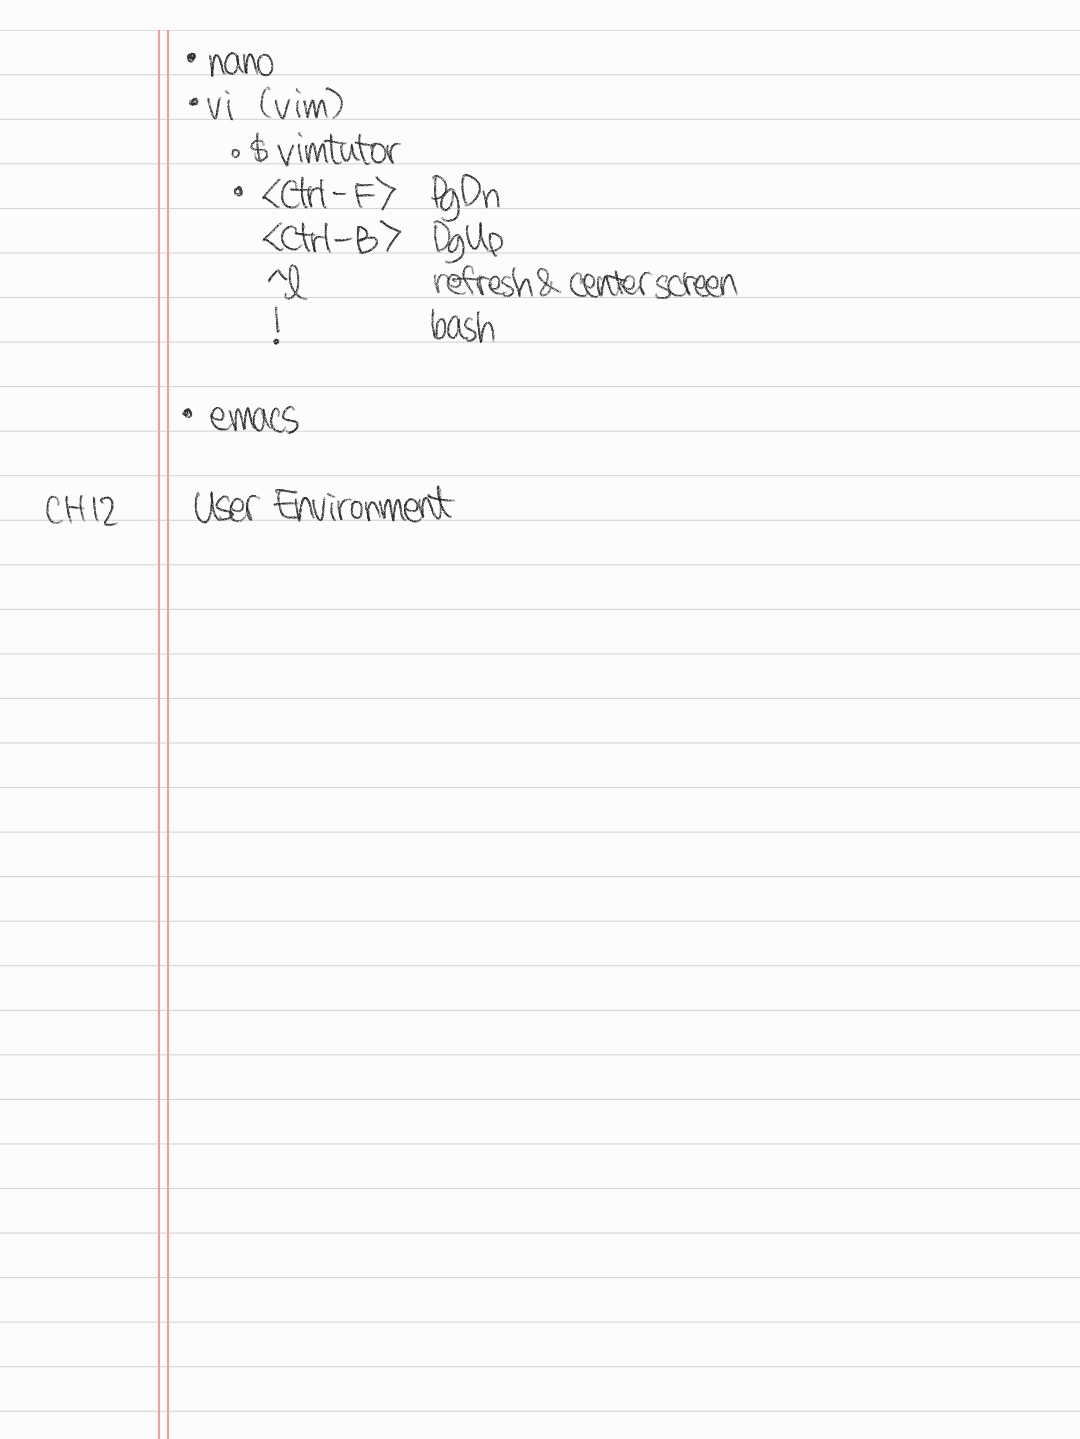 • nano
• vi (vim)
◦ $ vimtutor
• <Ctrl-F> PgDn
<Ctrl-B> PgUp
^l refresh & center screen
! bash
• emacs
CH12 User Environment